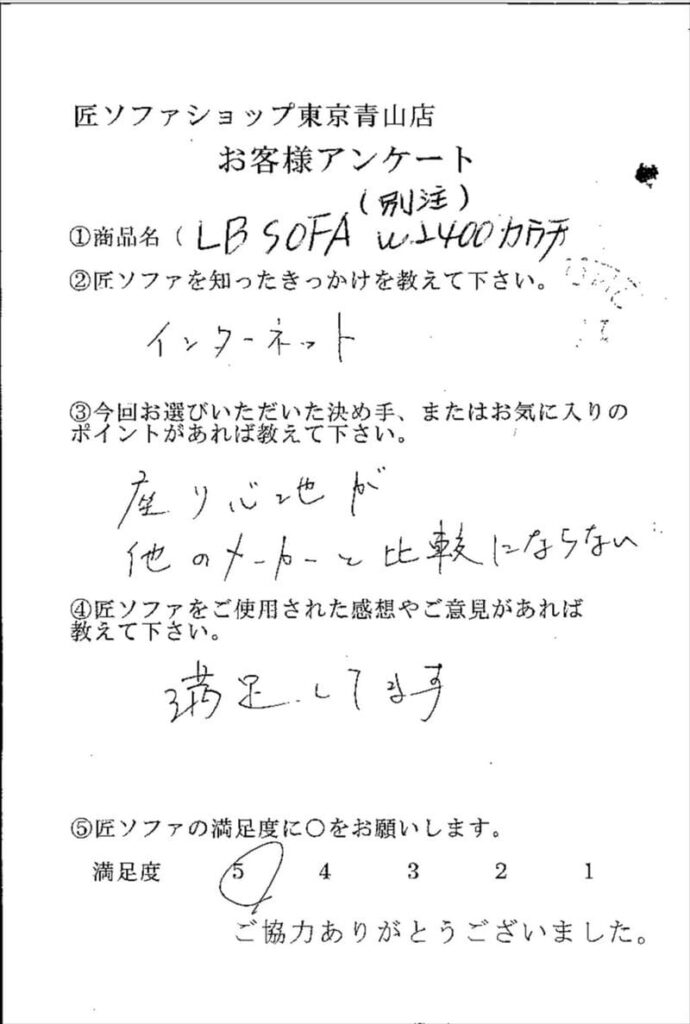 匠ソファショップ東京青山店
お客様アンケート
(別注)
①商品名( LB SOFA W2400カウチ
②匠ソファを知ったきっかけを教えて下さい。
インターネット
③今回お選びいただいた決め手、またはお気に入りの
ポイントがあれば教えて下さい。
座り心地が
他のメーカーと比較にならない
④匠ソファをご使用された感想やご意見があれば
教えて下さい。
満足してます
⑤匠ソファの満足度に○をお願いします。
満足度 5 4 3 2 1
ご協力ありがとうございました。